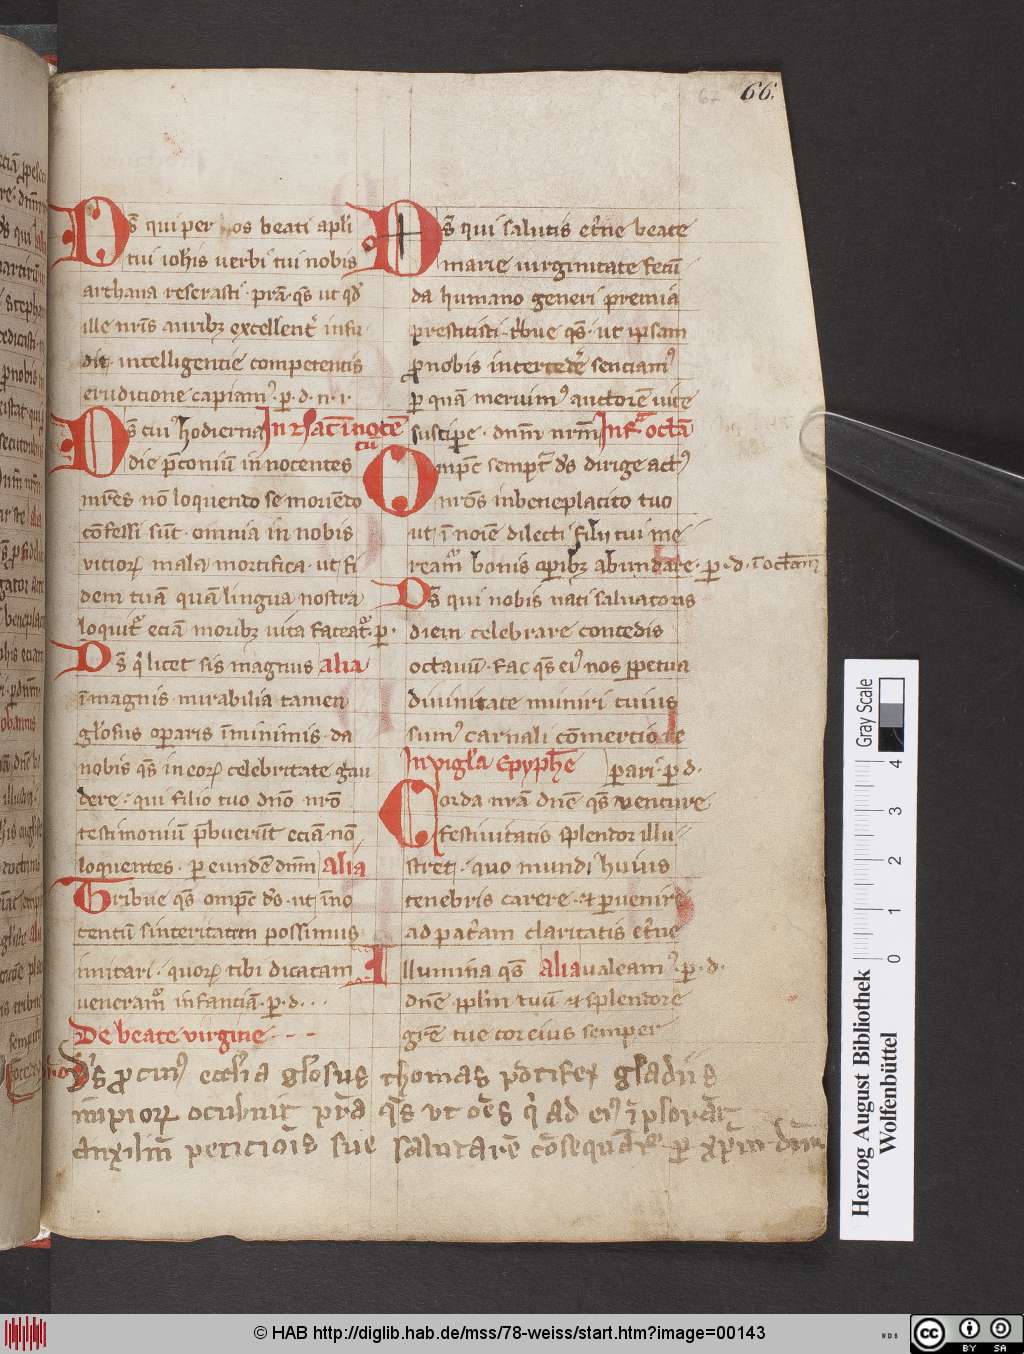 66.
67
Ds̄ qui per os beati apl̄i
tui ioh̄is uerbi tui nobis
archana reserasti · prā · qs̄ ut qd̄
ille nr̄is auribꝫ excellent͛ infu
dit · intelligentie competentis
eruditione capiamꝰ · ꝑ · d · n · i ·
Ds̄ cuiꝰ hodierna In
die p̄coniū innocentes
mr̄es nō loquendo se moriēdo
cōfessi sūt · omnia in nobis
uitioꝝ mala mortifica · ut fi
dem tuā quā lingua nostra
loquit͛ eciā moribꝫ uita fateat͛ · ꝑ ·
Ds̄ qͥ licet sis magnus alia
ī magnis mirabilia tamen
gl̄osus operaris ī minimis · da
nobis qs̄ in eoꝝ celebritate gau
dere · qui filio tuo dn̄o nr̄o
testimoniū p̄buerūt eciā nō
loquentes · ꝑ eundē dn̄m alia
Tribue qs̄ omp̄c ds̄ · ut īno
centū sinceritatem possimus
imitari · quoꝝ tibi dicatam
ueneram͛ infanciā · ꝑ · d · . .
De beate virgine · - -
Ds̄ qui salutis et͛ne beate
marie uirginitate fecū
da humano generi premia
prestitisti · t͛bue qs̄ · ut ipsam
ꝓ nobis intercedē sentiamꝰ
ꝑ quā meruimꝰ auctorē uite
suscipe · dn̄m nr̄m Inf͛ octā
Omp̄c sempt͛ ds̄ dirige actꝰ
nr̄os in beneplacito tuo
ut ī noīe dilecti filij tui me
ream͛ bonis operibꝫ abundare · ꝑ · d · ī octam
Ds̄ qui nobis nati saluatoris
diem celebrare concedis
octauū · fac qs̄ eiꝰ nos ꝑpetua
diuinitate muniri cuius
sumꝰ carnali cōmercio re
In vigl̄a Epyph̄e parati · ꝑ · d ·
Corda nr̄a dn̄e qs̄ venture
festiuitatis splendor illu
stret · quo mundi huius
tenebris carere · et ꝑuenire
ad pat͛am claritatis et͛ne
Illumina qs̄ alia ualeamꝰ · ꝑ · d ·
dn̄e ppl̄m tuū et splendore
gr̄e tue cor eius semper
Ds̄ ꝓ cuiꝰ eccl̄ia gl̄osus thomas pōtifex gladiis
impioꝝ ocubuit pr̄a qs̄ ut oēs qͥ ad eiꝰ īplorāt
auxiliū peticiōis sue salutarē cōsequāt͛ ꝑ xpm̄ dn̄m
Herzog August Bibliothek
Wolfenbüttel
0 1 2 3 4
Gray Scale
© HAB http://diglib.hab.de/mss/78-weiss/start.htm?image=00143
WDB
cc BY SA